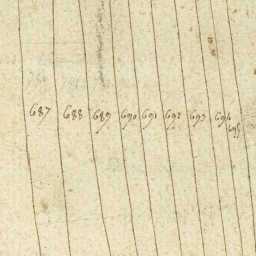 687 688 689 690 691 692 693 694
695